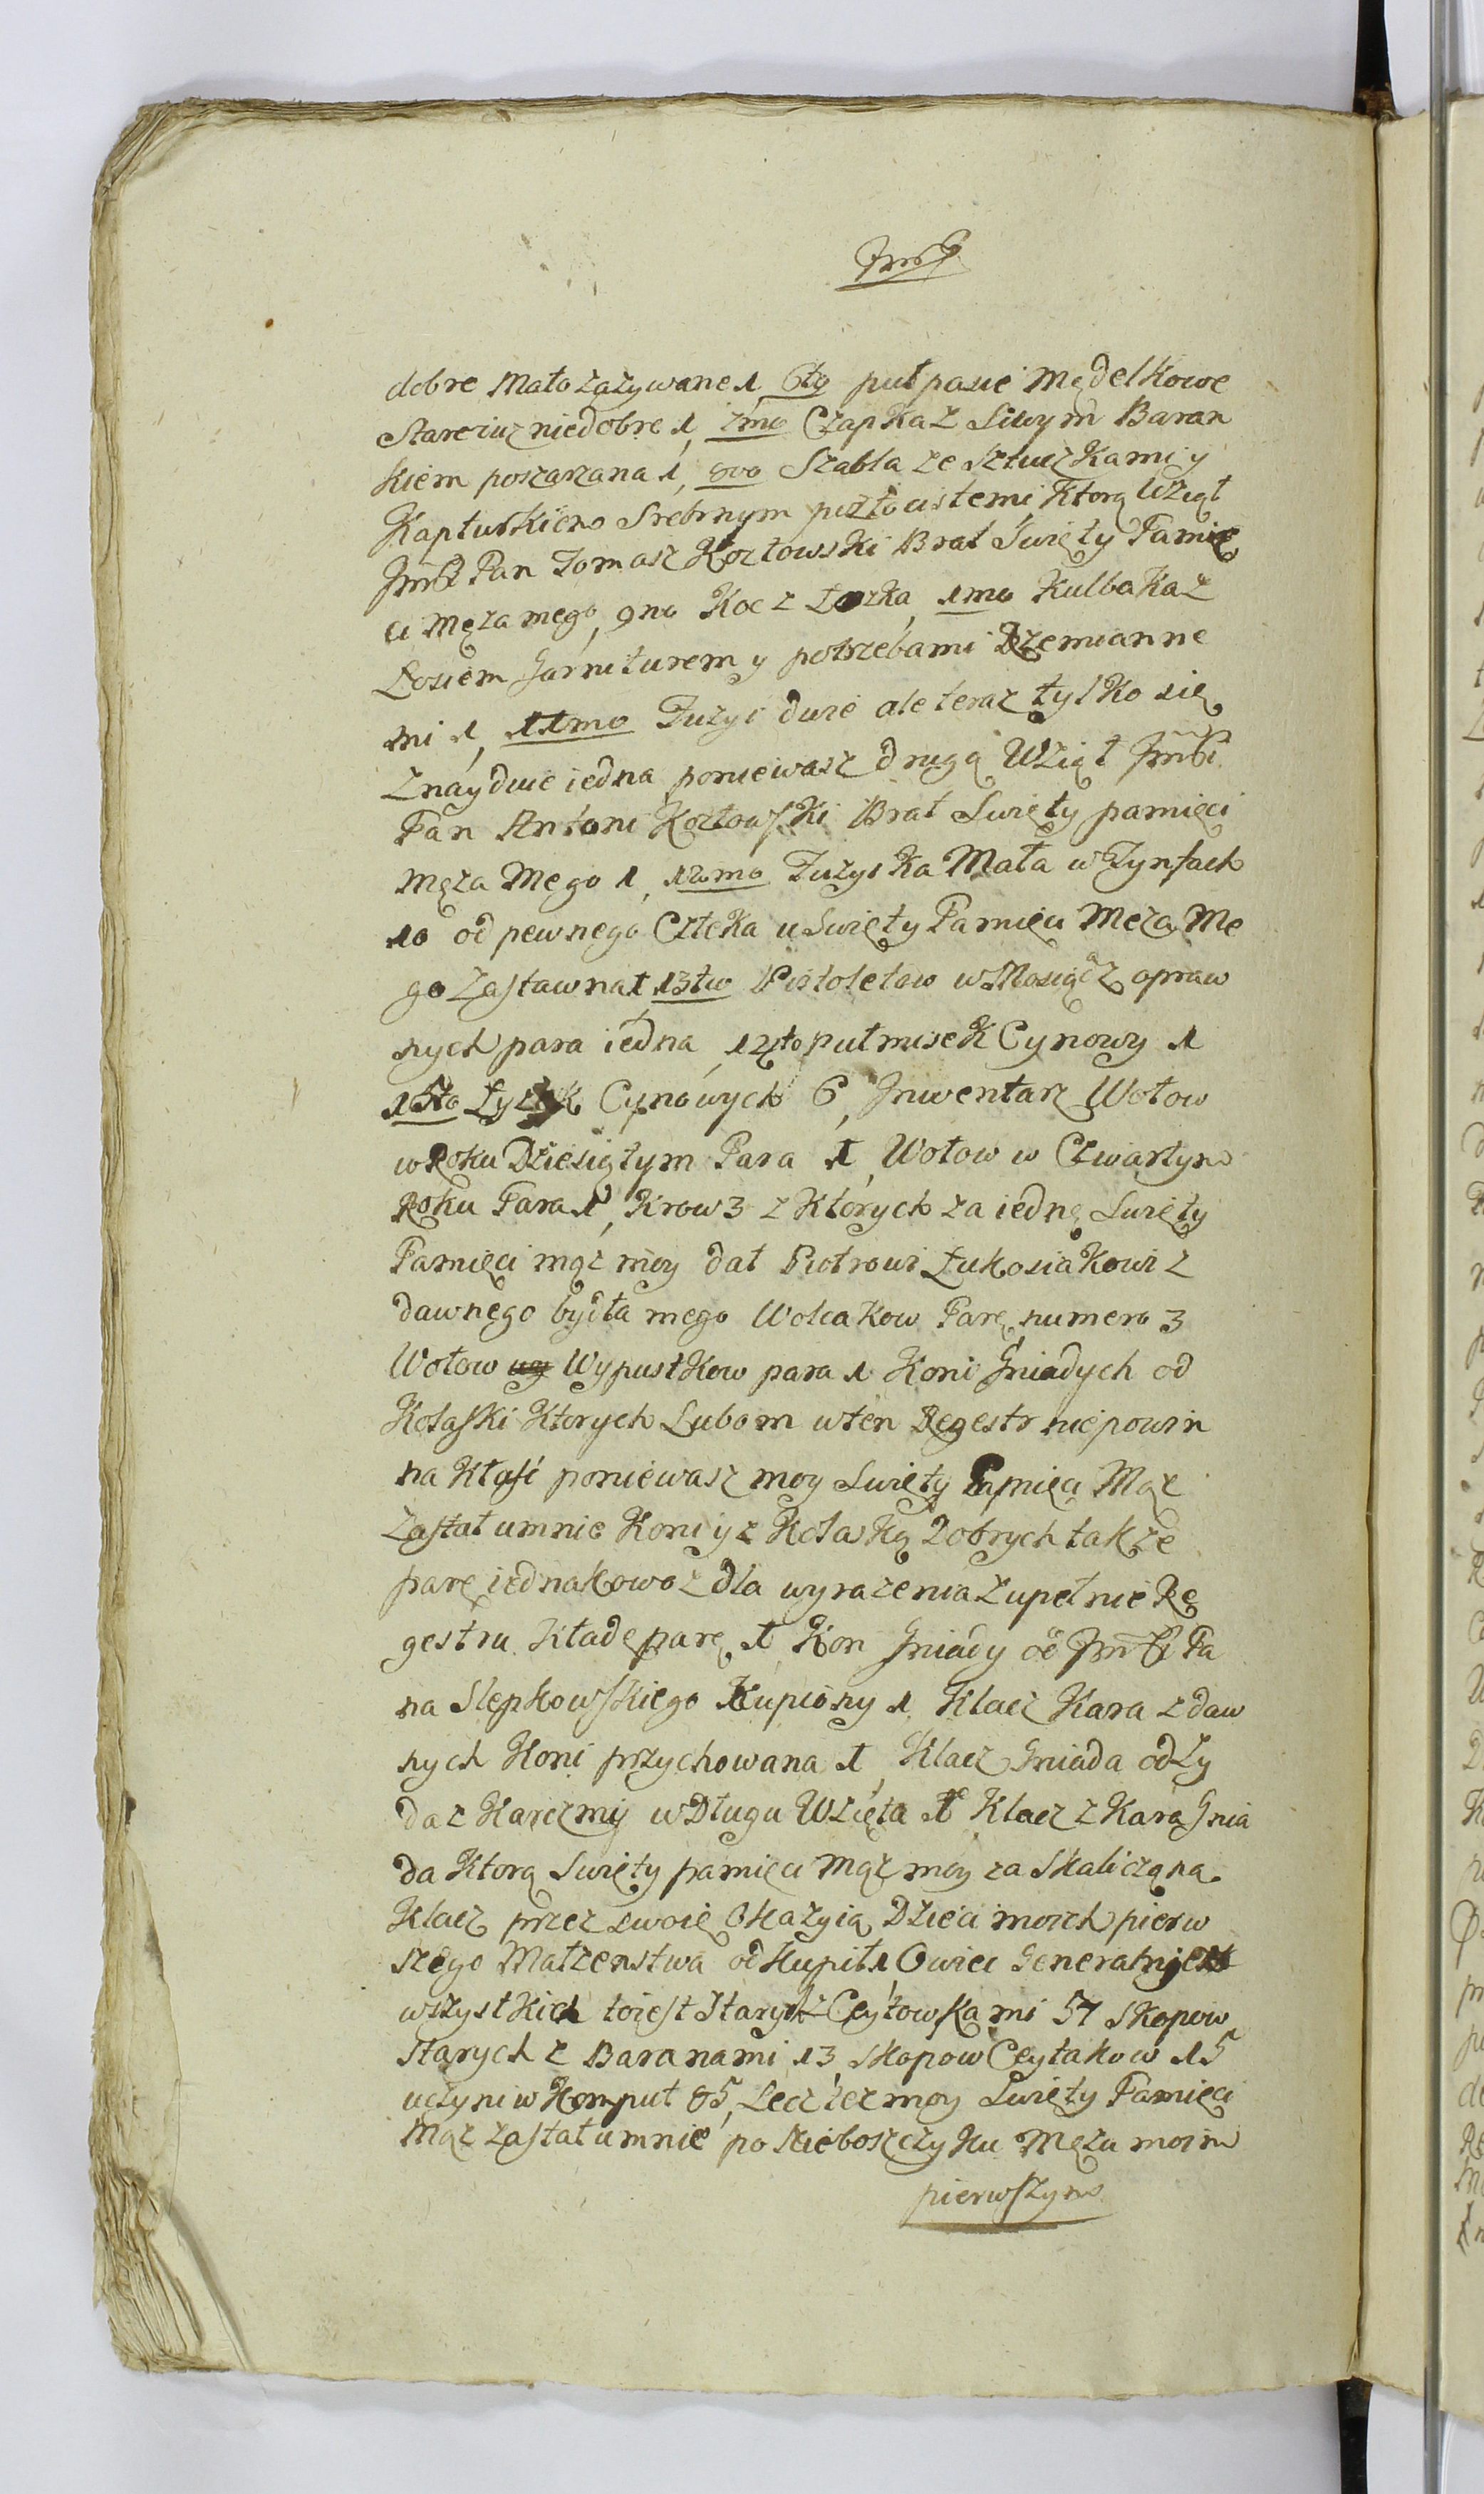 JmP
dobre Mało zazywane 1, 6to pułpasie Mędelkowe
Stare iuz niedobre 1, 7mo Czapka z Siwym Baran
kiem poszarzana 1, 8vo Szabla ze Sztuczkami y
Kapturkiem Srebrnym pozłocistemi, Ktorą Wziąt
Jmść Pan Tomasz Kozłowski Brat Swięty Pamię
ci Męza mego, 9no Koc z Łozka, 1mo Kulbaka z
Łosiem Garniturem y potrzebami Rzemianne
mi 1, 11mo Fuzyi dwie ale teraz tylko się
Znayduie iedna poniewasz drugą Wziąt Jmść
Pan Antoni Kozłowski Brat Swięty pamięci
Męza Mego 1, 12mo Fuzyika Mała w Tynfach
10 od pewnego Człeka u Swięty Pamięci Męza Me
go Zastawna 1 13tio Pistoletow w Mosiądz opraw
nych para iedna, 14to pułmisek Cynowy 1
15to Łyzek Cynowych 6, Inwentarz Wołow
w Roku Dziesiątym Para 1, Wołow w Czwartym
Roku Para 1, Krow 3 z Których za iednę Swięty
Pamięci mąz moy dał Piotrowi Łukosiakowi z
dawnego bydła mego Wolcakow Parę, numero 3
Wołow wy Wypustkow para 1 Koni Gniadych od
Kolaski Ktorych Lubom w ten Regestr nie powin
na Kłaść poniewasz moy Swięty Pamięci Mąz
Zastał umnie Koni y z Kolaską Dobrych także
parę iednakowoz dla wyrazenia Zupełnie Re
gestru Kładę parę 1 Kon Gniady od Jmści Pa
na Slepkowskiego Kupiony 1 Klacz Kara z daw
nych Koni przychowana 1, Klacz Gniada od Zy
da z Karczmy w Długu Wzięta 1 Klacz z Kara Gnia
da Ktorą Swięty pamięci Mąz moy za Skaliczoną
Klacz przez swoię Okazyią Dzieci moich pierw
szego Małzenstwa odkupił 1 Owiec Generalnie
wszystkich toiest Starych z Ceytowkami 57 Skopow
Starych z Baranami 13 Skopow Ceytakow 15
uczyni w Komput 85, Lecz tez moy Swięty Pamięci
Mąz Zastał umnie po Nieboszczyku Męzu moim
pierwszym